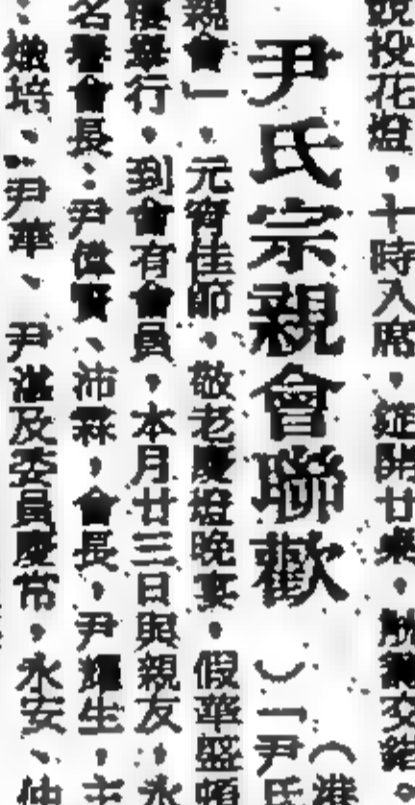 投花燈，十時入席，筵開廿桌。
尹氏宗親會聯歡
（港
）「尹氏
親會」，元宵佳節，敬老慶燈晚宴，假華盛頓
樓舉行，到會有會員，本月廿三日與親友，永
名譽會長：尹偉賢、沛霖，會長，尹生，主
培、尹華、尹滋及委員慶常，永安、仲